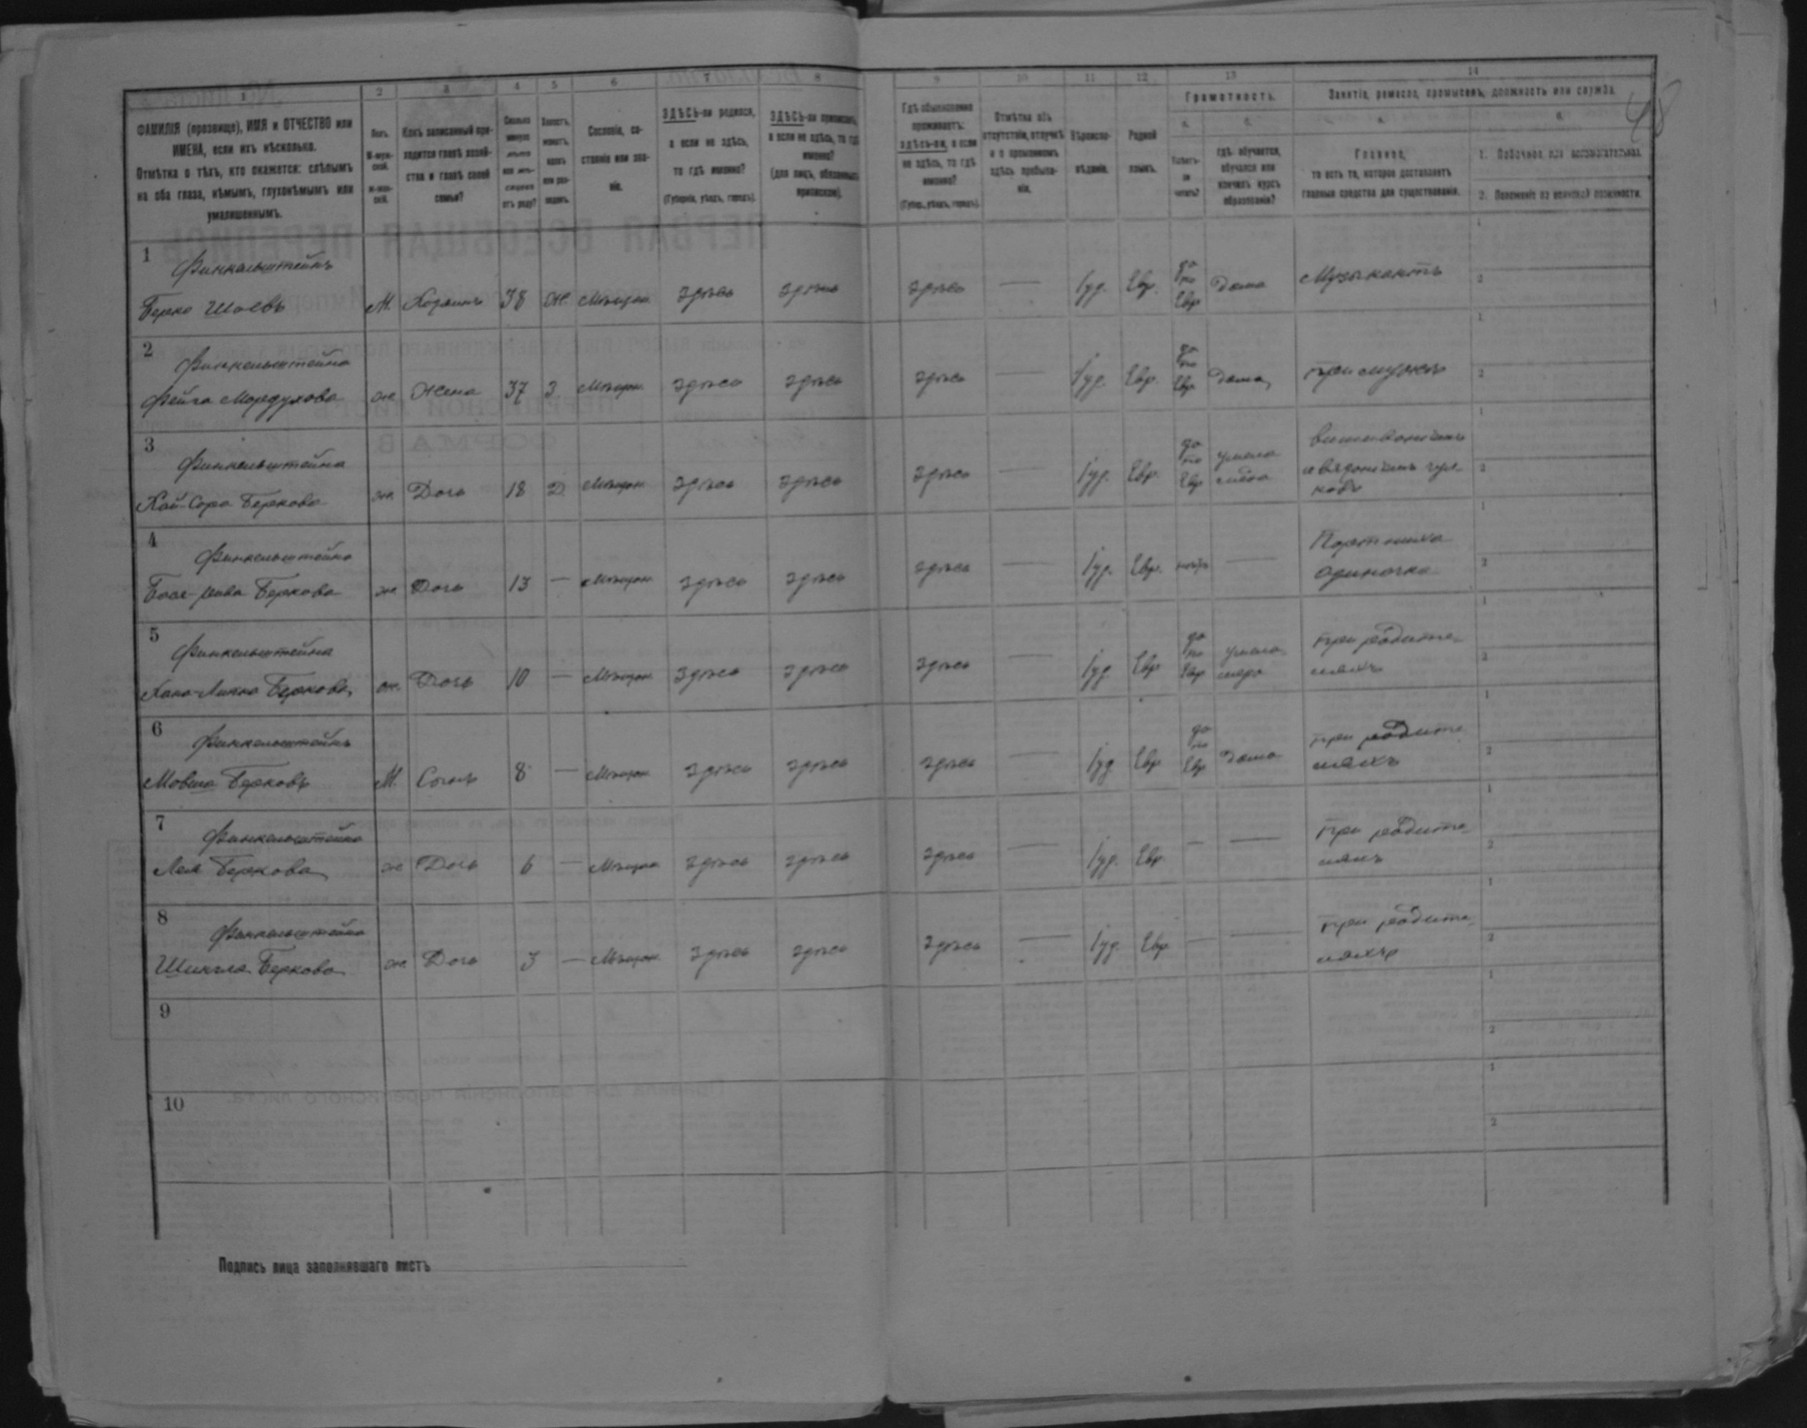 1 2 3 4 5 6 7 8 9 10 11 12 13 14
ФАМИЛІЯ (прозвище), ИМЯ и ОТЧЕСТВО или
ИМЕНА, если ихъ нѣсколько.
Отмѣтка о тѣхъ, кто окажется: слѣпымъ
на оба глаза, нѣмымъ, глухонѣмымъ или
умалишеннымъ.
Полъ.
М-муж-
ской.
Ж-жен-
скій.
Какъ записанный при-
ходится главѣ хозяй-
ства и главѣ своей
семьи?
Сколько
минуло
лѣтъ
или мѣ-
сяцевъ
отъ роду?
Холостъ,
женатъ,
вдовъ
или раз-
веденъ.
Сословіе, со-
стояніе или зва-
ніе.
ЗДѢСЬ-ли родился,
а если не здѣсь,
то гдѣ именно?
(Губернія, уѣздъ, городъ).
ЗДѢСЬ-ли приписанъ,
а если не здѣсь, то гдѣ
именно?
(для лицъ, обязанныхъ
припиской).
Гдѣ обыкновенно
проживаетъ:
здѣсь-ли, а если
не здѣсь, то гдѣ
именно?
(Губер., уѣздъ, городъ).
Отмѣтка объ
отсутствіи, отлучкѣ
и о временномъ
здѣсь пребыва-
ніи.
Вѣроиспо-
вѣданіе.
Родной
языкъ.
Грамотность.
а.
Умѣетъ-
ли
читать?
б.
гдѣ обучается,
обучался или
кончилъ курсъ
образованія?
Занятіе, ремесло, промыселъ, должность или служба.
а.
Главное,
то есть то, которое доставляетъ
главныя средства для существованія.
б.
1. Побочное или вспомогательное.
2. Положеніе по воинской повинности.
1 Финкельштейнъ
Берко Шоевъ М. Хозяинъ 38 Ж Мѣщан. здѣсь здѣсь здѣсь — Іуд. Евр. да по Евр. дома Музыкантъ
2 Финкельштейна
Фейга Мордухова ж Жена 37 З Мѣщан. здѣсь здѣсь здѣсь — Іуд. Евр. да по Евр дома при мужѣ
3 Финкельштейна
Хай-Сора Беркова ж Дочь 18 Д Мѣщан. здѣсь здѣсь здѣсь — Іуд. Евр. да по Евр
и вязаніемъ чул-
ковъ
4 Финкельштейна
Беркова ж Дочь 13 — Мѣщан. здѣсь здѣсь здѣсь — Іуд. Евр. нѣтъ — Портниха
одиночка
5 Финкельштейна
Беркова ж. Дочь 10 — Мѣщан. здѣсь здѣсь здѣсь — Іуд Евр да по Евр при родите-
ляхъ
6 Финкельштейнъ
Мовша Берковъ М. Сынъ 8 — Мѣщан. здѣсь здѣсь здѣсь — Іуд Евр да по Евр дома при родите
ляхъ
7 Финкельштейна
Лея Беркова ж Дочь 6 — Мѣщан здѣсь здѣсь здѣсь — Іуд. Евр. — — при родите-
ляхъ
8 Финкельштейна
Беркова ж Дочь 3 — Мѣщан. здѣсь здѣсь здѣсь — Іуд. Евр. — — при родите-
ляхъ
9
10
Подпись лица заполнявшаго листъ